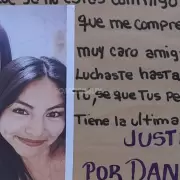 que me compre
muy caro amig
Luchaste hasta
Tú, se que Tus Pe
Tiene la Ultima
JUST
POR DAN